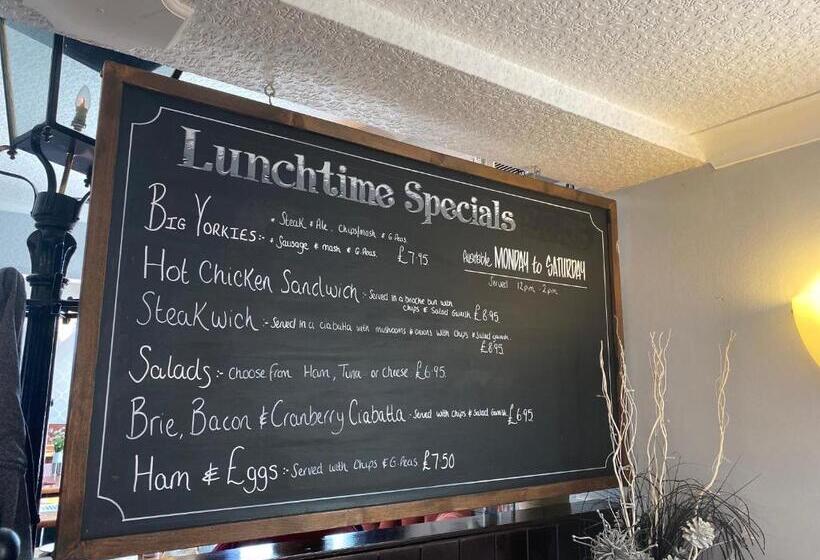 Lunchtime Specials
Big Yorkies:- • Steak & Ale. Chips/mash & G.Peas.
• Sausage & mash & G.Peas. £7.95
Available MONDAY to SATURDAY
Served 12pm - 2pm.
Hot Chicken Sandwich:- Served in a brioche bun with
chips & Salad Garnish. £8.95.
Steakwich:- Served in a ciabatta with mushrooms & onions with chips & salad garnish.
£8.95.
Salads:- choose from Ham, Tuna or cheese. £6.95.
Brie, Bacon & Cranberry Ciabatta - Served with chips & Salad Garnish. £6.95
Ham & Eggs:- Served with Chips & G.Peas. £7.50